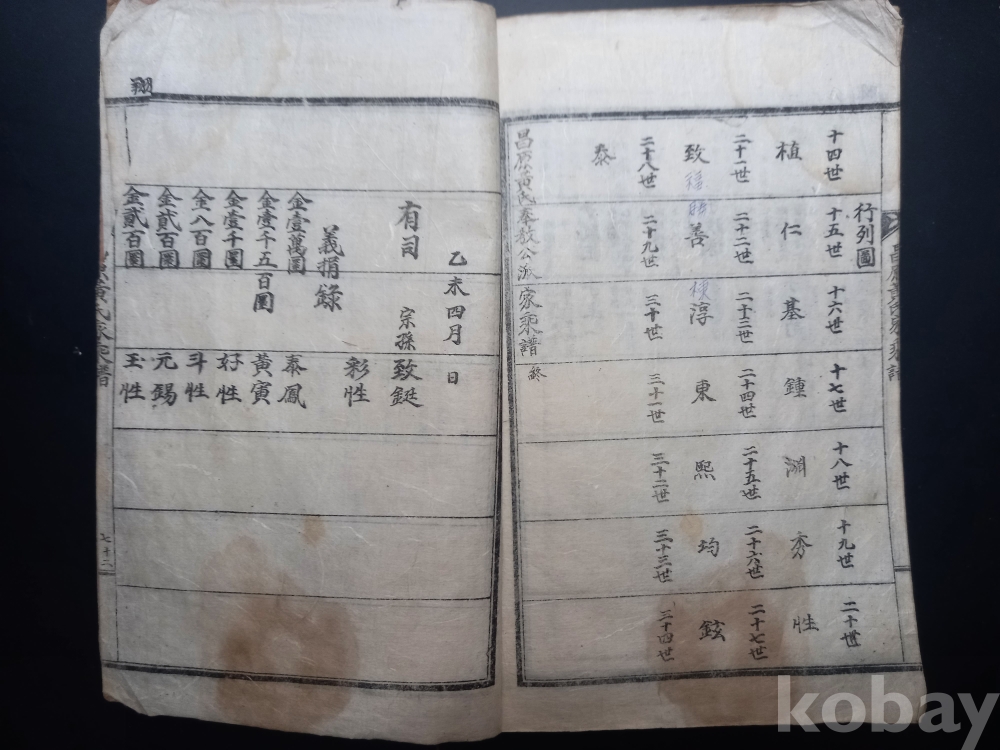 行列圖
十四世 十五世 十六世 十七世 十八世 十九世 二十世
植 仁 基 鍾 淵 秀 性
二十一世 二十二世 二十三世 二十四世 二十五世 二十六世 二十七世
致 善 淳 東 熙 均 鉉
二十八世 二十九世 三十世 三十一世 三十二世 三十三世 三十四世
泰
昌原黃氏奉教公派家乘譜 終
翔
乙未四月 日
有司 宗孫 致鋌
彩性
義捐錄
金壹萬圜 泰鳳
金壹千五百圜 黃寅
金壹千圜 好性
金八百圜 斗性
金貳百圜 元錫
金貳百圜 玉性
七十二
kobay